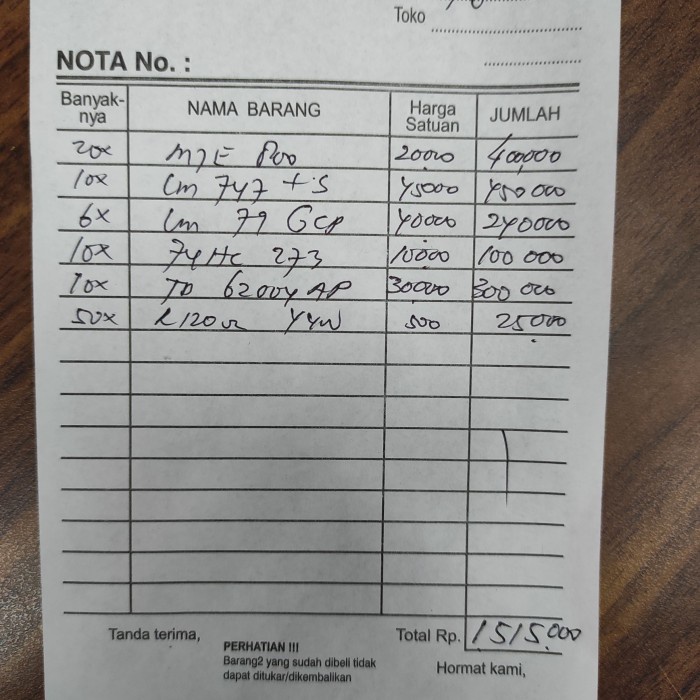 Toko
NOTA No. :
Banyak-nya NAMA BARANG Harga Satuan JUMLAH
20x MJE 800 20000 400000
10x LM 747 + S 45000 450 000
6x LM 79 GCP 40000 240000
10x 74HC 273 10000 100 000
10x TD 62004 AP 30000 300 000
50x R120Ω 500 25000
Total Rp. 1515.000
Tanda terima,
PERHATIAN !!!
Barang2 yang sudah dibeli tidak
dapat ditukar/dikembalikan
Hormat kami,